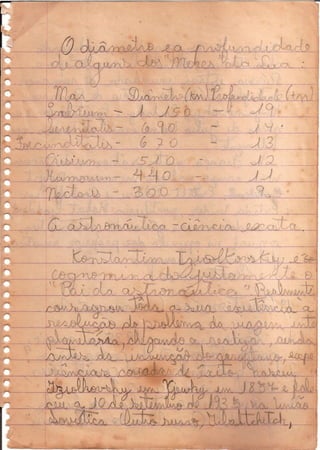 O diâmetro e a profundidade
de alguns dos "Mares" da Lua:
Mar Diâmetro (km) Profundidade (km)
Imbrium - 1 150 - 19.
Serenitatis - 690 - 14.
Fecunditatis - 670 - 13
Crisium - 510 - 12
Humorum - 440 - 11
Nectaris - 300 9.
A astronáutica - ciência exata.
Konstantim Tziolkovsky é
cognominado justamente o
"Pai da astronáutica". Realmente
consagrou toda a sua existência à
resolução do problema da viagem inter
planetária, chegando a realizar, ainda
antes da invenção do aeroplano, expe
riências coroadas de êxito. Nasceu
Tziolkovsky em em 1857 e fale
ceu a 19 de setembro de 1935 na União
Soviética. Outro russo,